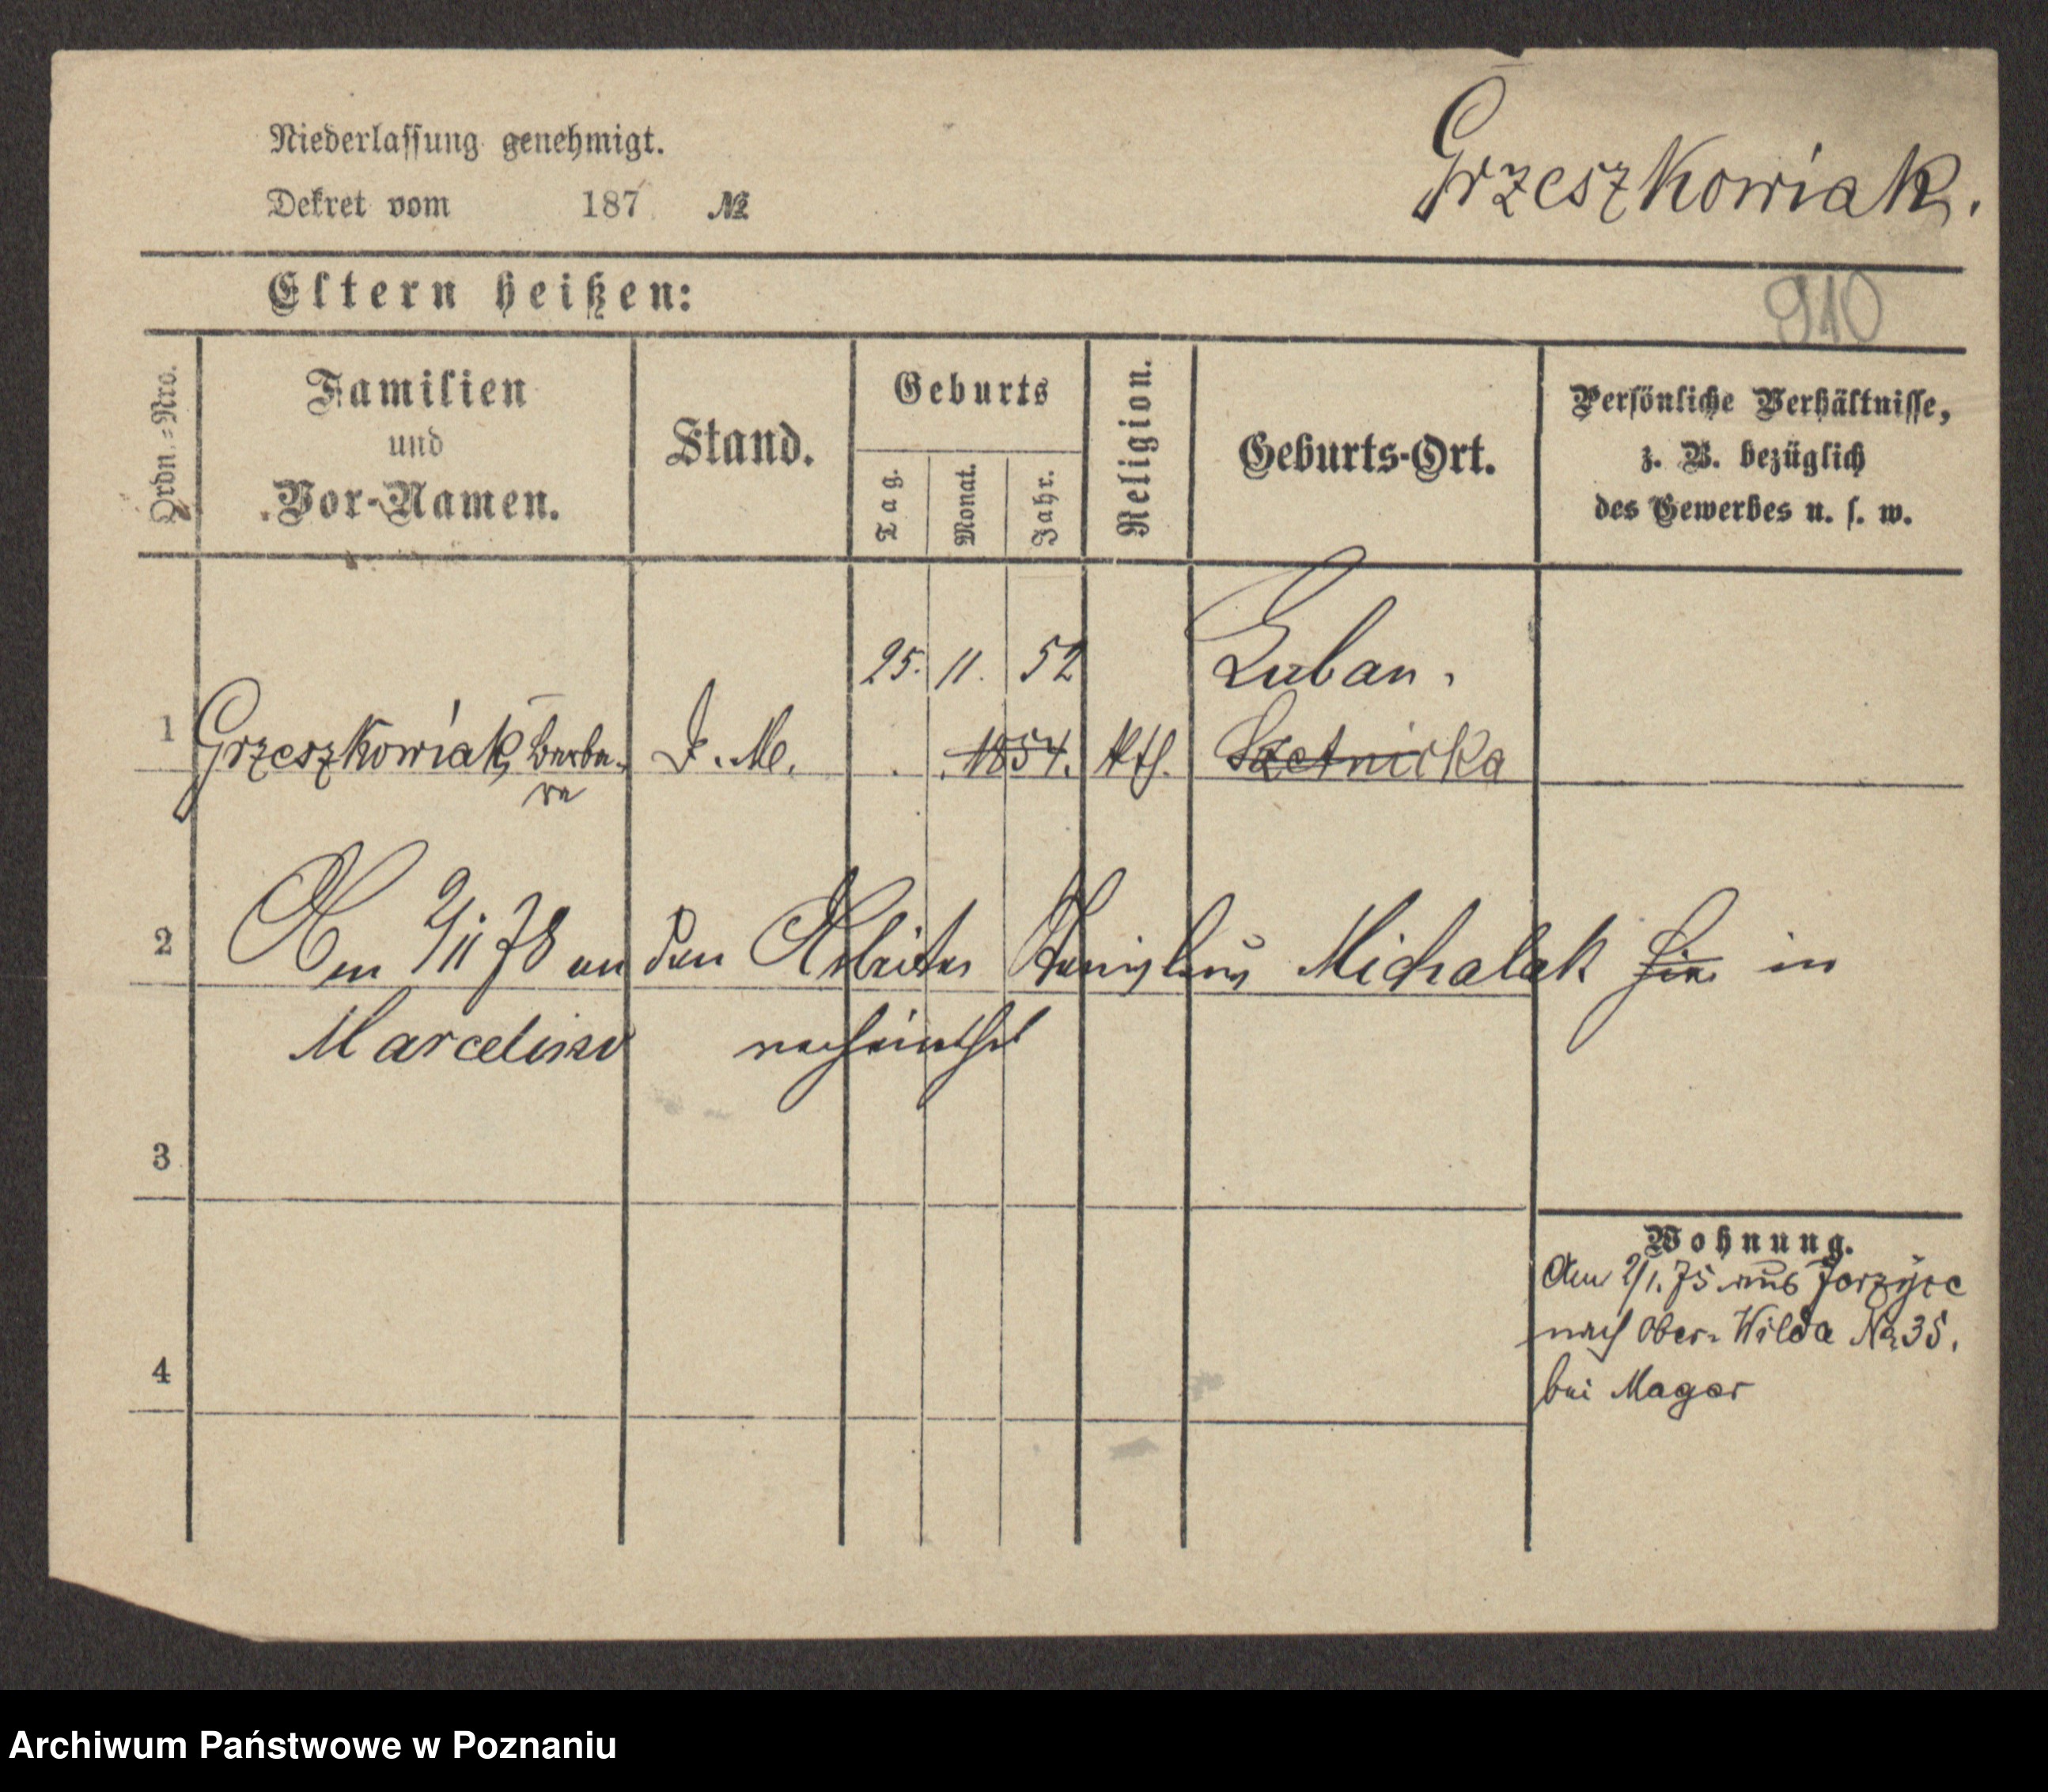 Niederlassung genehmigt.
Dekret vom 187 №
Grzeszkowiak.
Eltern heißen:
910
Ordn.-Nro.
Familien
und
Vor-Namen.
Stand.
Geburts
Tag.
Monat.
Jahr.
Religion.
Geburts-Ort.
Persönliche Verhältnisse,
z. B. bezüglich
des Gewerbes u. s. w.
25. 11. 52 Luban.
1 Grzeszkowiak, Barba-
ra
D. M. 1854. kth.
2 Am 9/11 78 an den Arbeiter Stanislaus Michalak hier in
Marcelino verheirathet
3
Wohnung.
Am 2/1. 75 aus Jerzyce
nach Ober-Wilda No 35.
bei Mager
4
Archiwum Państwowe w Poznaniu